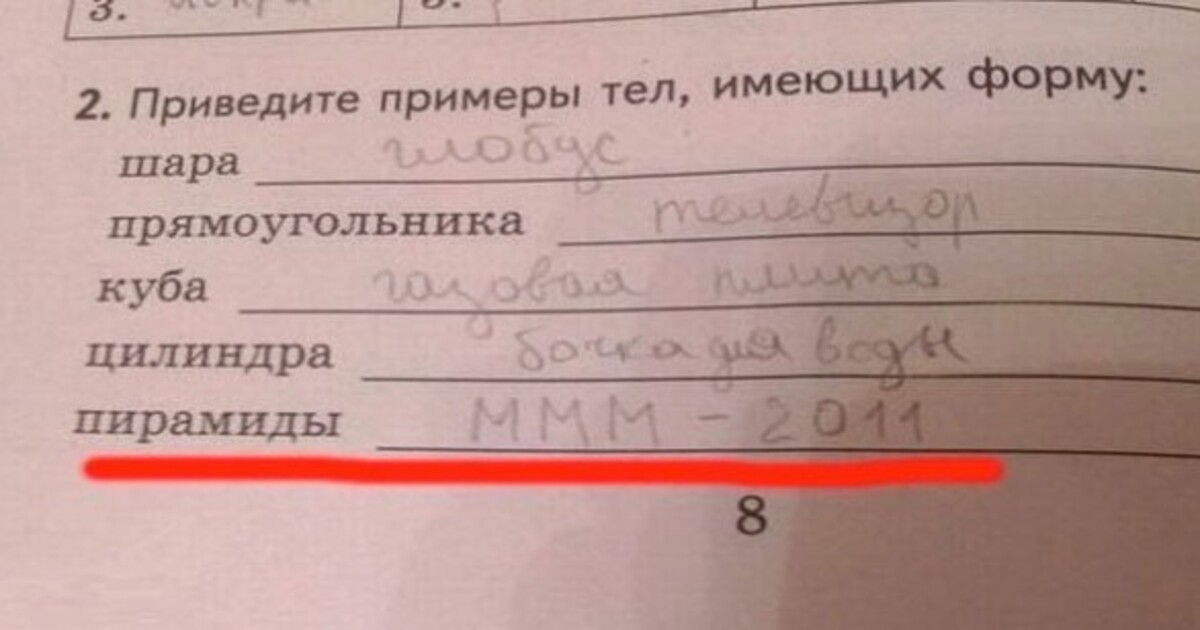 3.
2. Приведите примеры тел, имеющих форму:
шара глобус
прямоугольника телевизор
куба газовая плита
цилиндра бочка для воды
пирамиды МММ - 2011
8